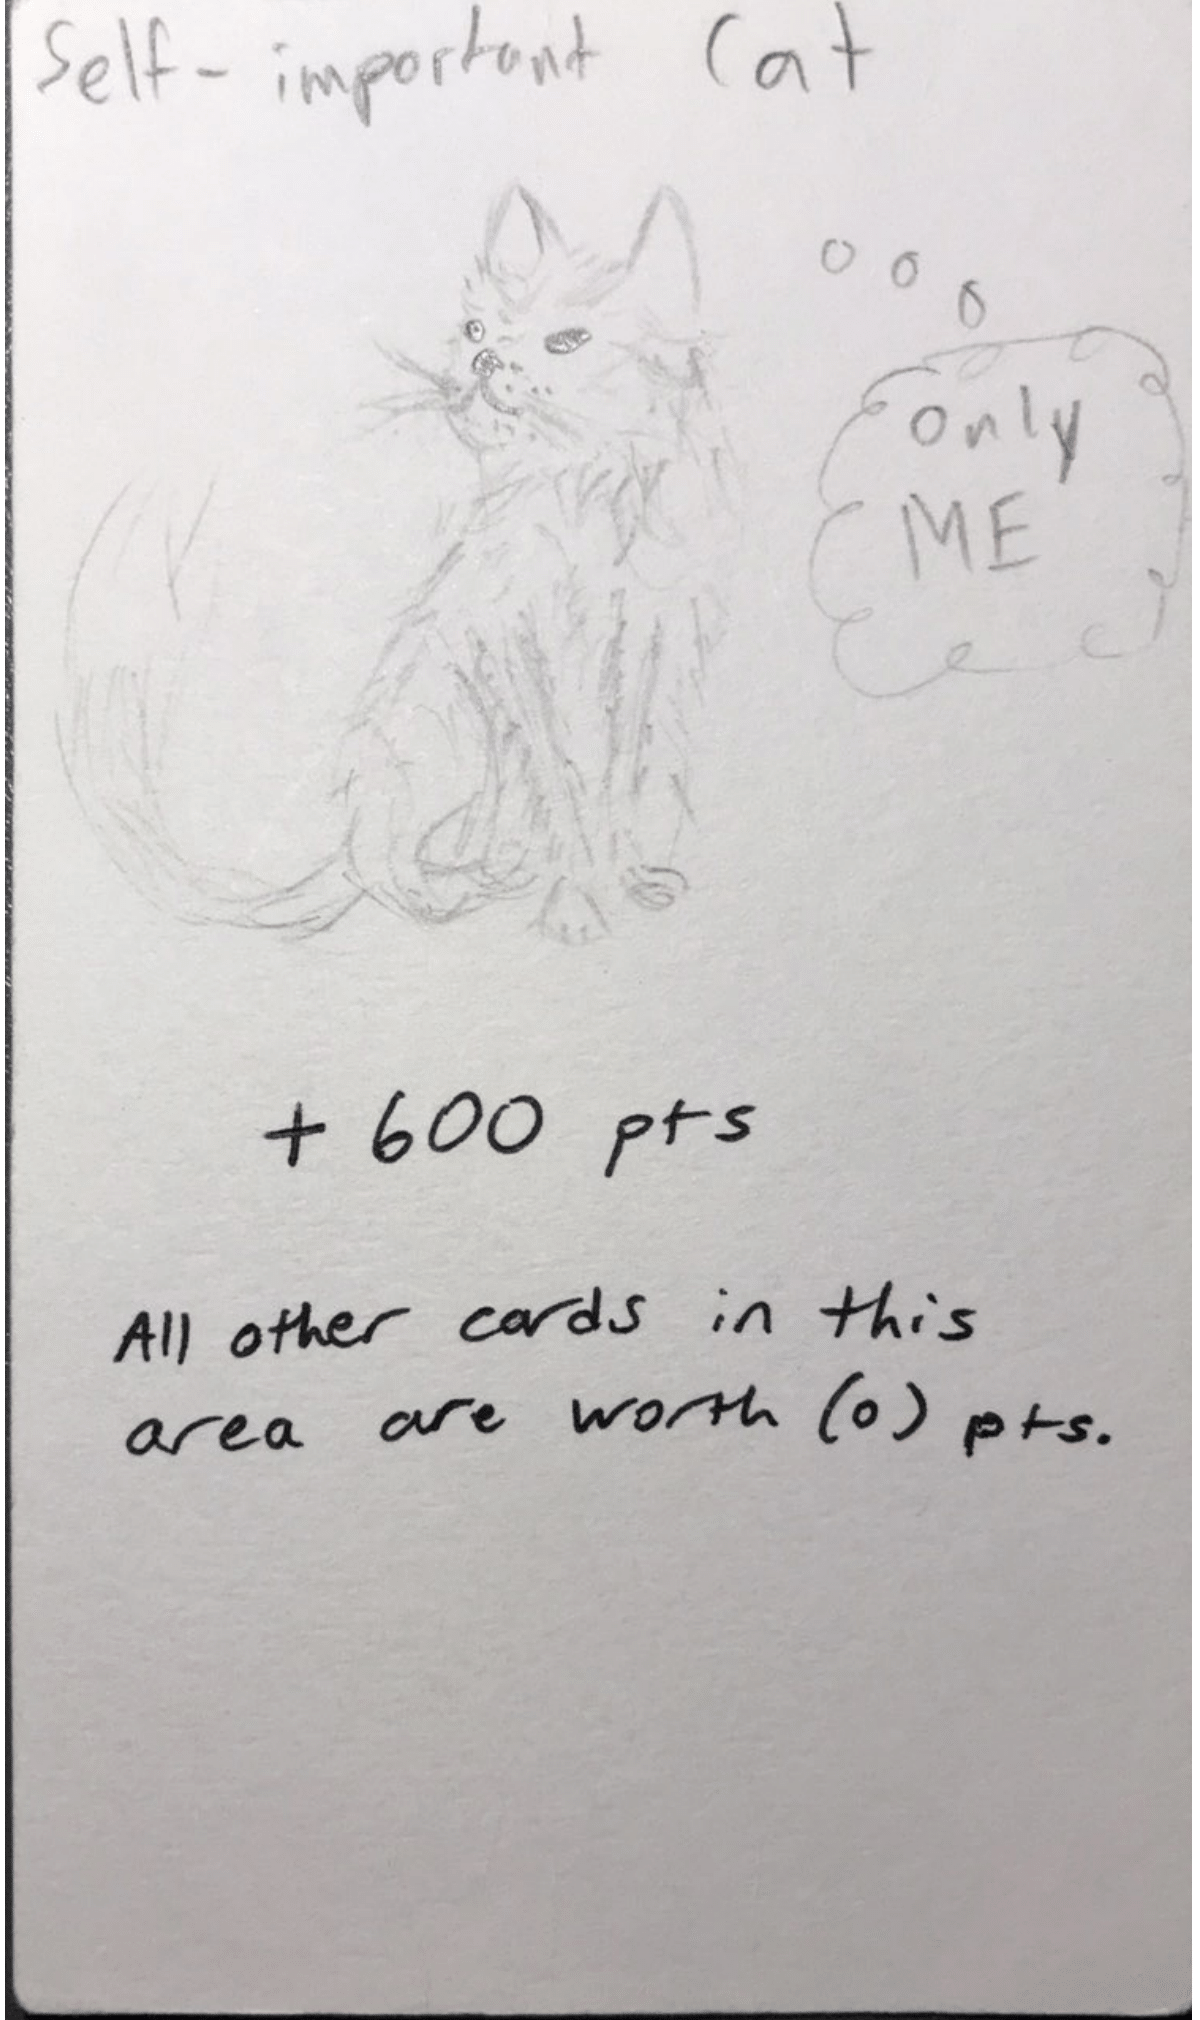 Self-important Cat
only
ME
+ 600 pts
All other cards in this
area are worth (0) pts.